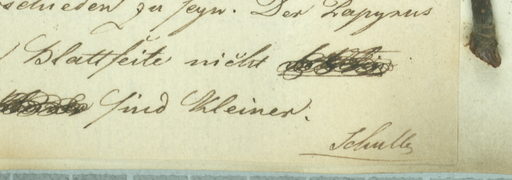 schieden zu seyn. Der Papyrus
Blattseite nicht
sind kleiner.
Schultz